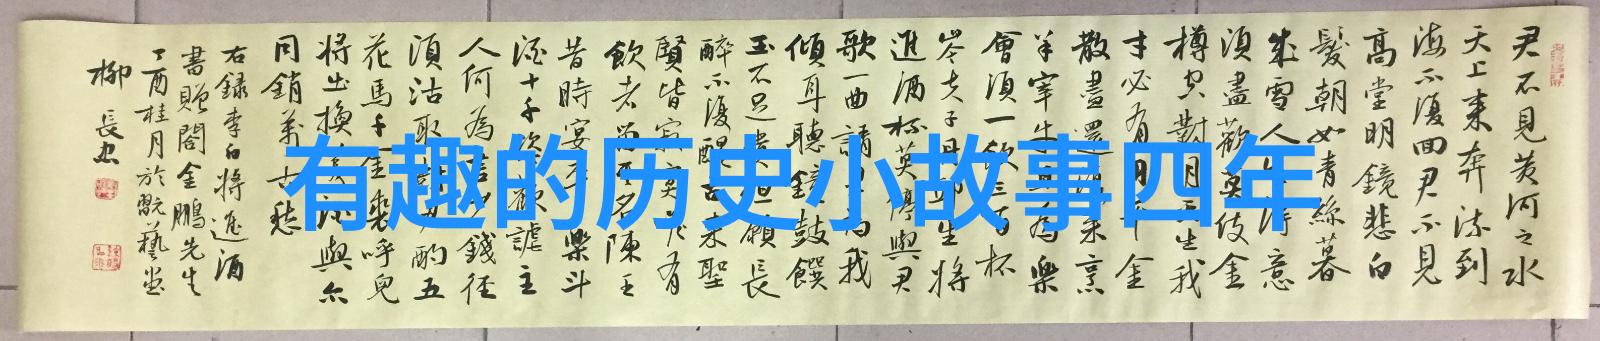 君不見黃河之水
天上来奔流到
海不復回君不見
高堂明鏡悲白
髮朝如青絲暮
成雪人生得意
須盡歡莫使金
樽空對月天生我
才必有用千金
散盡還復来烹
羊宰牛且為樂
會須一飲三百杯
岑夫子丹邱生將
進酒杯莫停與君
歌一曲請君為我
傾耳聽鐘鼓饌
玉不足貴但願長
醉不復醒古来聖
賢皆寂寞唯有
飲者留其名陳王
昔時宴平樂斗
酒十千恣歡謔主
人何為言少錢徑
須沽取對君酌五
花馬千金裘呼兒
將出換美酒與尔
同銷萬古愁
右録李白將進酒
書贈閤金鵬先生
丁酉桂月於翫藝堂
柳長忠
有趣的历史小故事四年